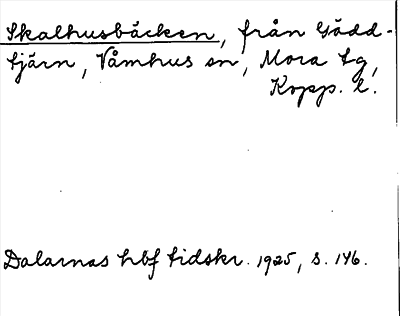 Skalhusbäcken, från Gädd-
tjärn, Våmhus sn, Mora tg,
Kopp. l.
Dalarnas hbf tidskr. 1925, s. 146.